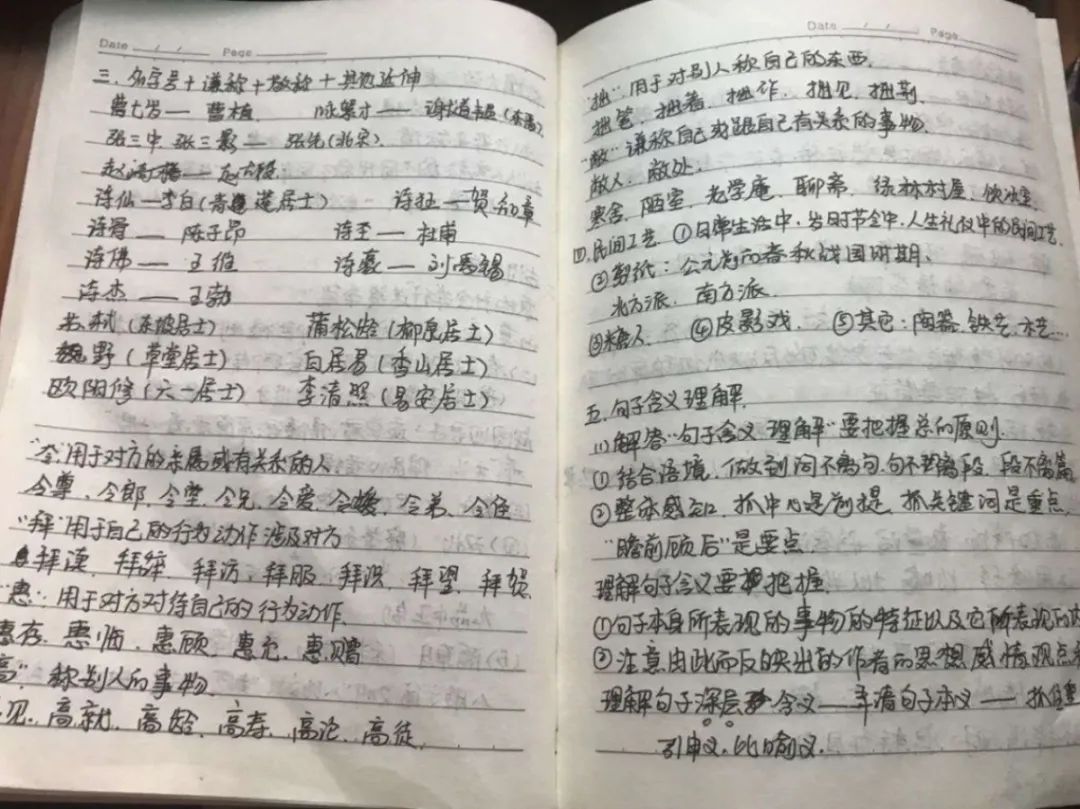 Date / / Page
三、名字号+谦称+敬称+其他延伸
曹七步——曹植 咏絮才——谢道韫(东晋)
张三中 张三影——张先(北宋)
赵——赵
诗仙—李白(青莲居士) 诗狂—贺知章
诗骨——陈子昂 诗圣——杜甫
诗佛——王维 诗豪——刘禹锡
诗杰——王勃
苏轼(东坡居士) 蒲松龄(柳泉居士)
魏野(草堂居士) 白居易(香山居士)
欧阳修(六一居士) 李清照(易安居士)
“令”用于对方的亲属或有关系的人
令尊、令郎、令堂、令兄、令爱、令嫒、令弟、令侄
“拜”用于自己的行为动作涉及对方
拜读、拜辞、拜访、拜服、拜、拜望、拜贺.
“惠”:用于对方对待自己的行为动作.
惠存、惠临、惠顾、惠允、惠赠
高”称别人的事物.
见、高就、高龄、高寿、高论、高徒.
Date / / Page
“拙”用于对别人称自己的东西.
拙笔、拙著、拙作、拙见、拙荆.
“敝”谦称自己或跟自己有关系的事物.
敝人、敝处.
寒舍、陋室、老学庵、聊斋、绿林村屋、饮冰室.
四.民间工艺 ①日常生活中.岁时节令中.人生礼仪中的民间工艺.
②剪纸:公元前春秋战国时期.
北方派、南方派.
③糖人. ④皮影戏. ⑤其它:陶器.铁艺.木艺...
五.句子含义理解.
(1)解答“句子含义理解”要把握总的原则.
①结合语境,做到词不离句.句不离段、段不离篇
②整体感知、抓中心是前提,抓关键词是重点,
“瞻前顾后”是要点.
理解句子含义要把握.
①句子本身所表现的事物的特征以及它所表现的
②注意由此而反映出的作者的思想感情观点
理解句子深层含义——弄清句子本义——抓住
引申义.比喻义.